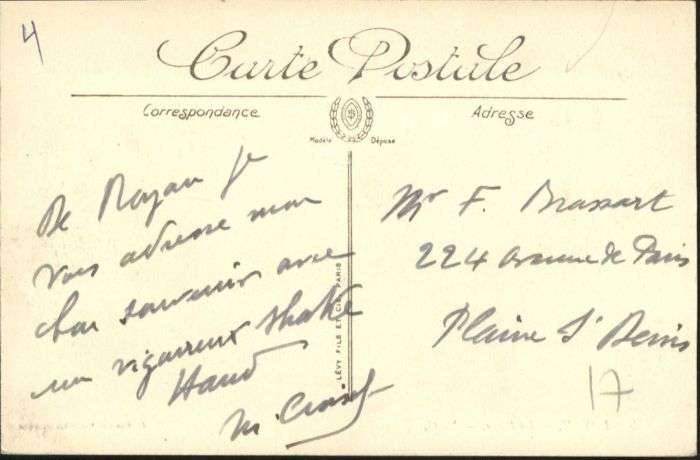 4
Carte Postale
Correspondance
Adresse
Modèle Déposé
De Royan je
vous adresse mon
bon souvenir avec
un vigoureux shake
Hand
M.
Mr F. Brassart
224 avenue de Paris
Plaine St Denis
17
LÉVY FILS ET CIE, PARIS